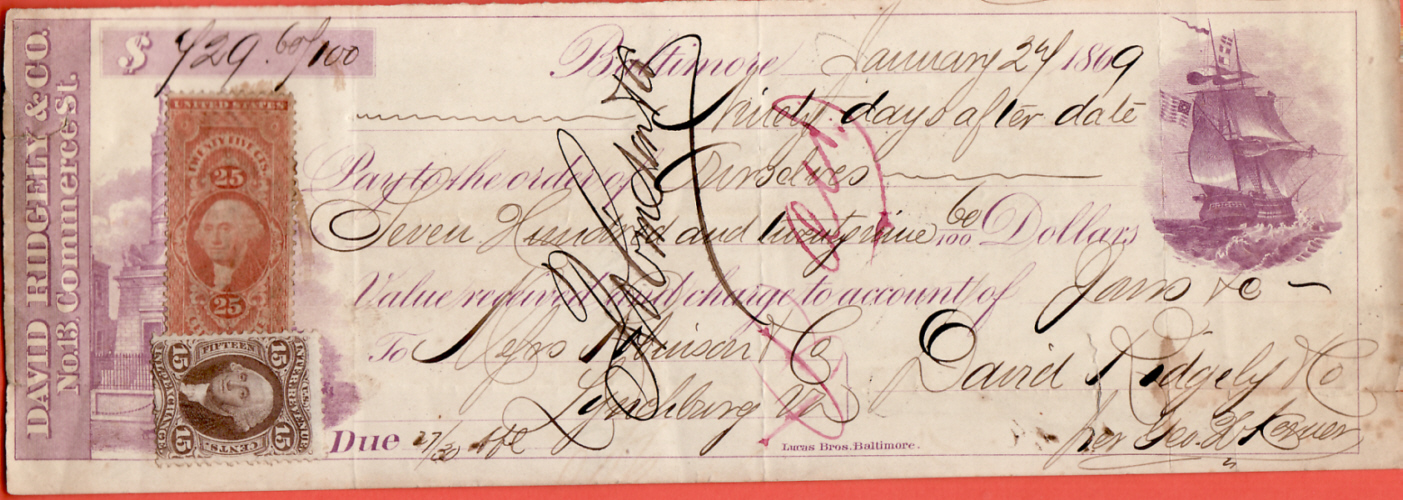 DAVID RIDGELY & CO.
No. 13 Commerce St.
$ 729.60/100
Baltimore January 27 1869
Ninety days after date
Pay to the order of Ourselves
Seven Hundred and twenty nine 60/100 Dollars
Value received and charge to account of Yours &c
To Messrs Robinson & Co
Lynchburg Va
David Ridgely & Co
per Geo.
Due 27/30 Apl
Lucas Bros. Baltimore.
UNITED STATES
TWENTY FIVE CTS.
25
25
15 FIFTEEN 15
INTER. REVENUE
INLAND EXCHANGE
15 CENTS. 15